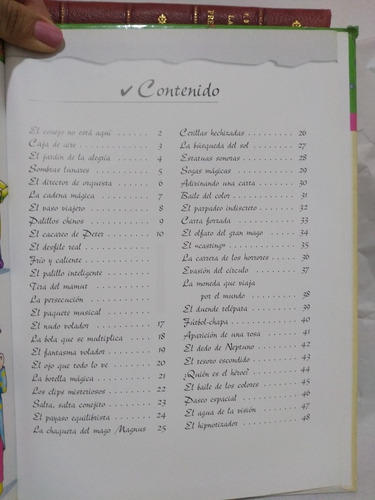 ✓ Contenido
El conejo no está aquí . . . . . . 2
Caja de aire . . . . . . . . . . . 3
El jardín de la alegría . . . . . . 4
Sombras lunares . . . . . . . . . 5
El director de orquesta . . . . . . 6
La cadena mágica . . . . . . . . 7
El vaso viajero . . . . . . . . . . 8
Palillos chinos . . . . . . . . . . 9
El cacareo de Peter . . . . . . . 10
El desfile real . . . . . . . . . .
Frío y caliente . . . . . . . . . .
El palillo inteligente . . . . . . .
Tira del mamut . . . . . . . . . .
La persecución . . . . . . . . . .
El paquete musical . . . . . . . .
El nudo volador . . . . . . . . . 17
La bola que se multiplica . . . . 18
El fantasma volador . . . . . . . 19
El ojo que todo lo ve . . . . . . . 20
La botella mágica . . . . . . . . 21
Los clips misteriosos . . . . . . . 22
Salta, salta conejito . . . . . . . 23
El payaso equilibrista . . . . . . 24
La chaqueta del mago Magnus 25
Cerillas hechizadas . . . . . . . . 26
La búsqueda del sol . . . . . . . 27
Estatuas sonoras . . . . . . . . . 28
Sogas mágicas . . . . . . . . . . 29
Adivinando una carta . . . . . . 30
Baile del color . . . . . . . . . . 31
El parpadeo indiscreto . . . . . . 32
Carta forrada . . . . . . . . . . 33
El olfato del gran mago . . . . . 34
El «casting» . . . . . . . . . . . 35
La carrera de los horrores . . . . 36
Evasión del círculo . . . . . . . . 37
La moneda que viaja
por el mundo . . . . . . . . 38
El duende telépata . . . . . . . . 39
Fútbol-chapa . . . . . . . . . . . 40
Aparición de una rosa . . . . . . 41
El dedo de Neptuno . . . . . . . 42
El tesoro escondido . . . . . . . 43
¿Quién es el héroe? . . . . . . . 44
El baile de los colores . . . . . . 45
Paseo espacial . . . . . . . . . . 46
El agua de la visión . . . . . . . 47
El hipnotizador . . . . . . . . . . 48